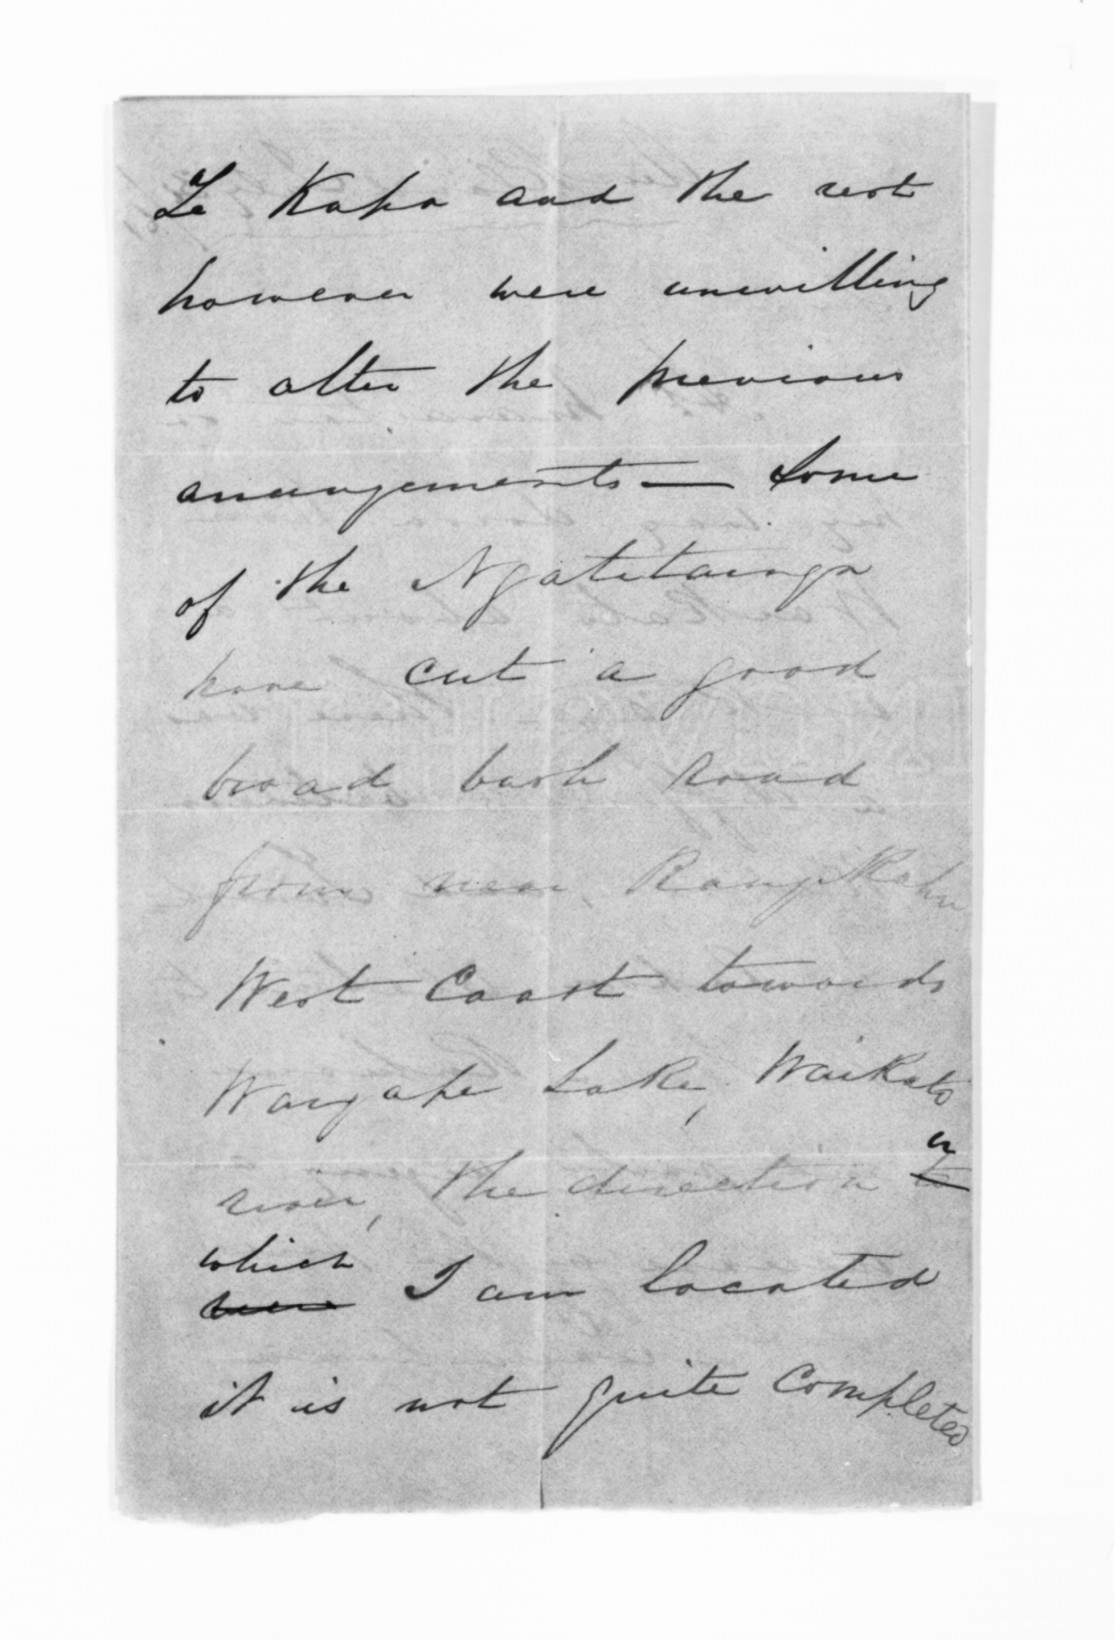 Te Kapa and the rest
however were unwilling
to alter the previous
arrangements — Some
of the Ngatitainga
have cut a good
broad bush road
from near,
West Coast towards
Wangape Lake, Waikato
river, the direction to in
were which I am located
it is not quite completed